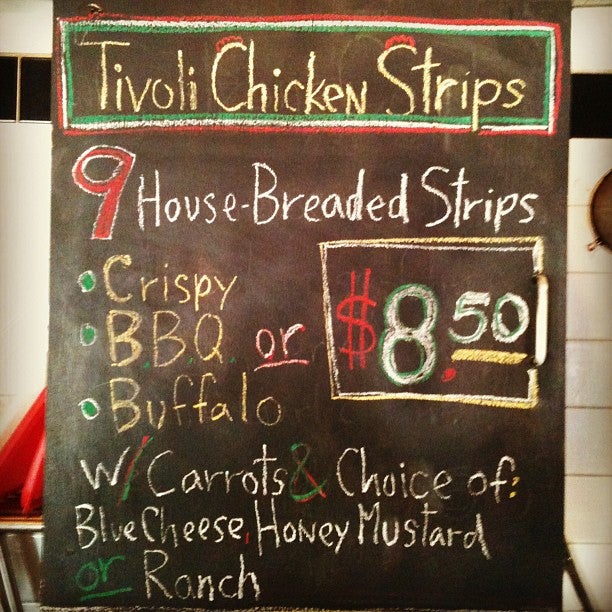 Tivoli Chicken Strips
9 House-Breaded Strips
• Crispy
• B.B.Q. or
• Buffalo
$8.50
w/ Carrots & Choice of:
Blue Cheese, Honey Mustard
or Ranch